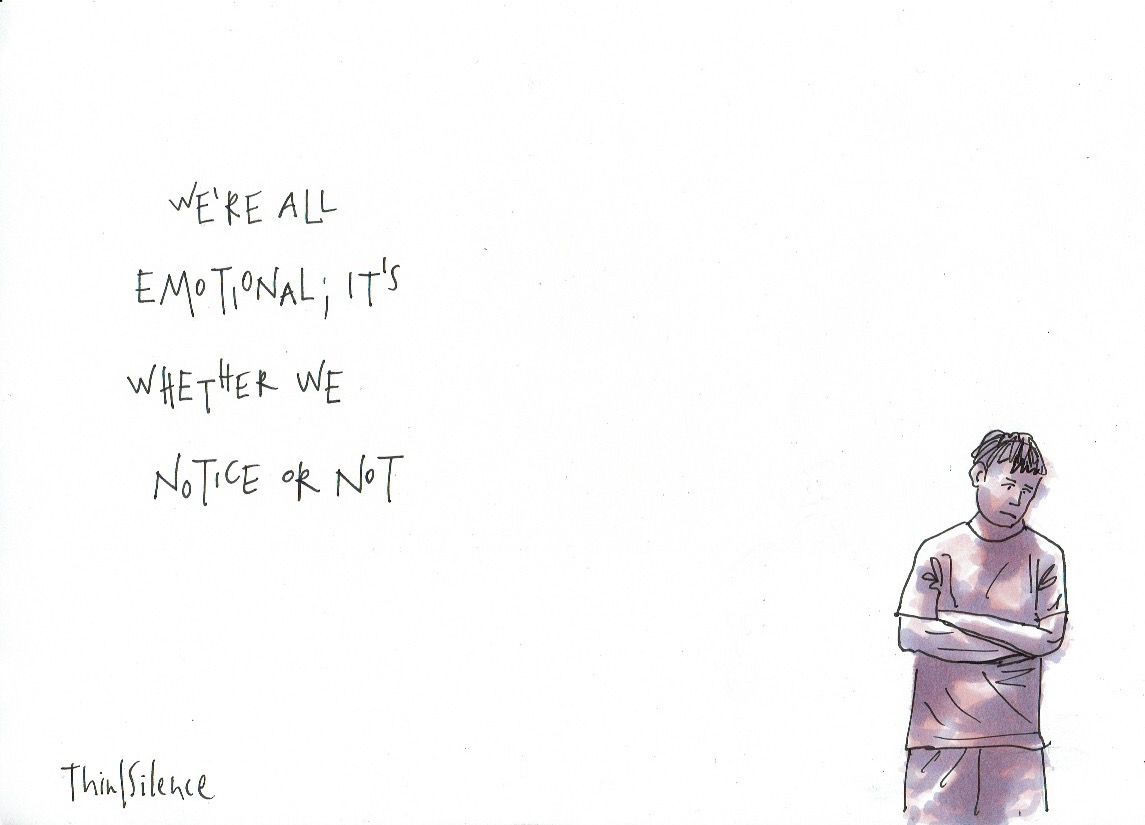 WE'RE ALL
EMOTIONAL; IT'S
WHETHER WE
NOTICE OR NOT
Thin/Silence